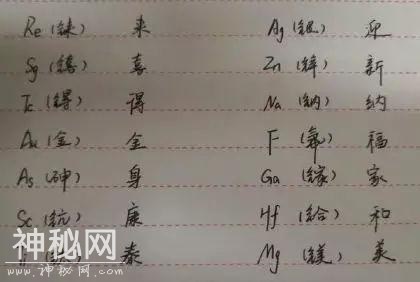 Re (铼) 来 Ag (银) 迎
Sg (𬭳) 喜 Zn (锌) 新
Tc (锝) 得 Na (钠) 纳
Au (金) 金 F (氟) 福
As (砷) 身 Ga (镓) 家
Sc (钪) 康 Hf (铪) 和
泰 Mg (镁) 美
神秘网
www.神秘网.com